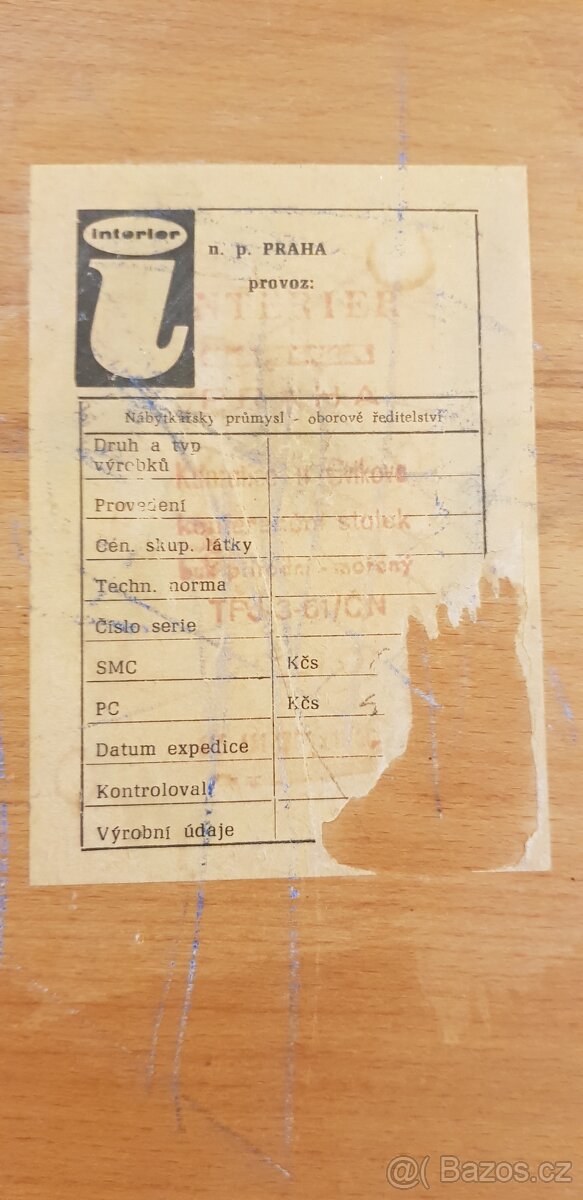 interier
n. p. PRAHA
provoz:
INTERIER
PRAHA
Nábytkářský průmysl - oborové ředitelství
Druh a typ
výrobků
Provedení
konferenční stolek
Cen. skup. látky
buk přírodní - mořený
Techn. norma
Číslo serie
SMC Kčs
PC Kčs
Datum expedice
Kontroloval:
Výrobní údaje
@( Bazos.cz